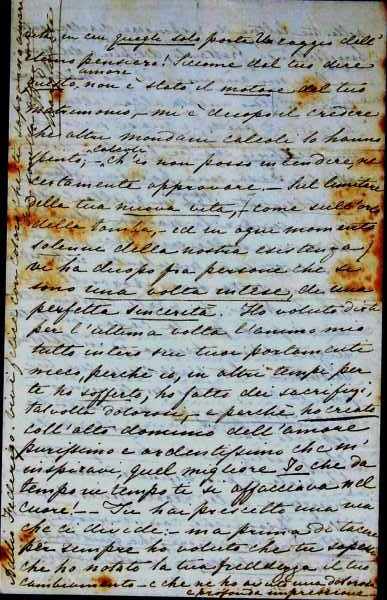 in cui quegli solo porta il raggio dell'
eterno pensiero! Siccome dal tuo dire
amore
questo, non è stato il motore del tuo
matrimonio, mi è duopo il credere
che altri mondani calcoli lo hanno
calcoli
ch'io non posso intendere, nè
certamente approvare. – Sul limitare
della tua nuova vita, come sull'orlo
della tomba, – ed in ogni momento
solenne della nostra esistenza,
vi ha duopo fra persone che si
sono una volta intese, di una
perfetta sincerità. Ho voluto dirti
per l'ultima volta l'animo mio
tutto intero sui tuoi portamenti
meco, perchè io, in altri tempi per
te ho sofferto, ho fatto dei sacrifizi
talvolta dolorosi, – e perchè ho creato
coll'alto dominio dell'amore
purissimo e ardentissimo che m'
inspiravi, quel migliore Io che da
tempo in tempo ti si affacciava nel
cuore! – Tu hai prescelto una via
che ci divide: – ma prima di tacere
per sempre ho voluto che tu sapessi
che ho notato la tua freddezza il tuo
cambiamento – e che ne ho avuto una dolorosa
e profonda impressione